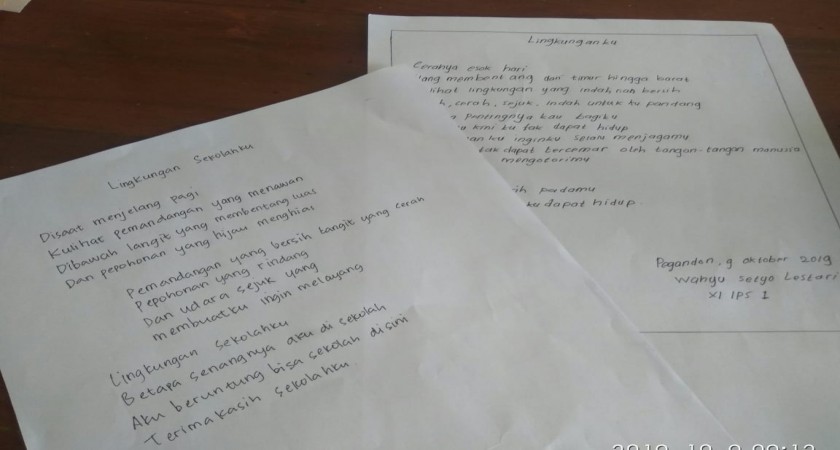 Lingkungan Sekolahku
Disaat menjelang pagi
Kulihat pemandangan yang menawan
Dibawah langit yang membentang luas
Dan pepohonan yang hijau menghias
Pemandangan yang bersih langit yang cerah
Pepohonan yang rindang
Dan udara sejuk yang
membuatku ingin melayang
Lingkungan sekolahku
Betapa senangnya aku di sekolah
Aku beruntung bisa sekolah disini
Terimakasih sekolahku
Lingkunganku
Cerahya esok hari
yang membentang dari timur hingga barat
lihat lingkungan yang indah nan bersih
h, cerah, sejuk, indah untuk ku pandang
pentingnya kau bagiku
kini ku tak dapat hidup
ku inginku selalu menjagamu
tak dapat tercemar oleh tangan-tangan manusia
mengotorimu
ih padamu
ku dapat hidup.
Pagandon, 9 Oktober 2019
Wahyu Setyo Lestari
XI IPS 1